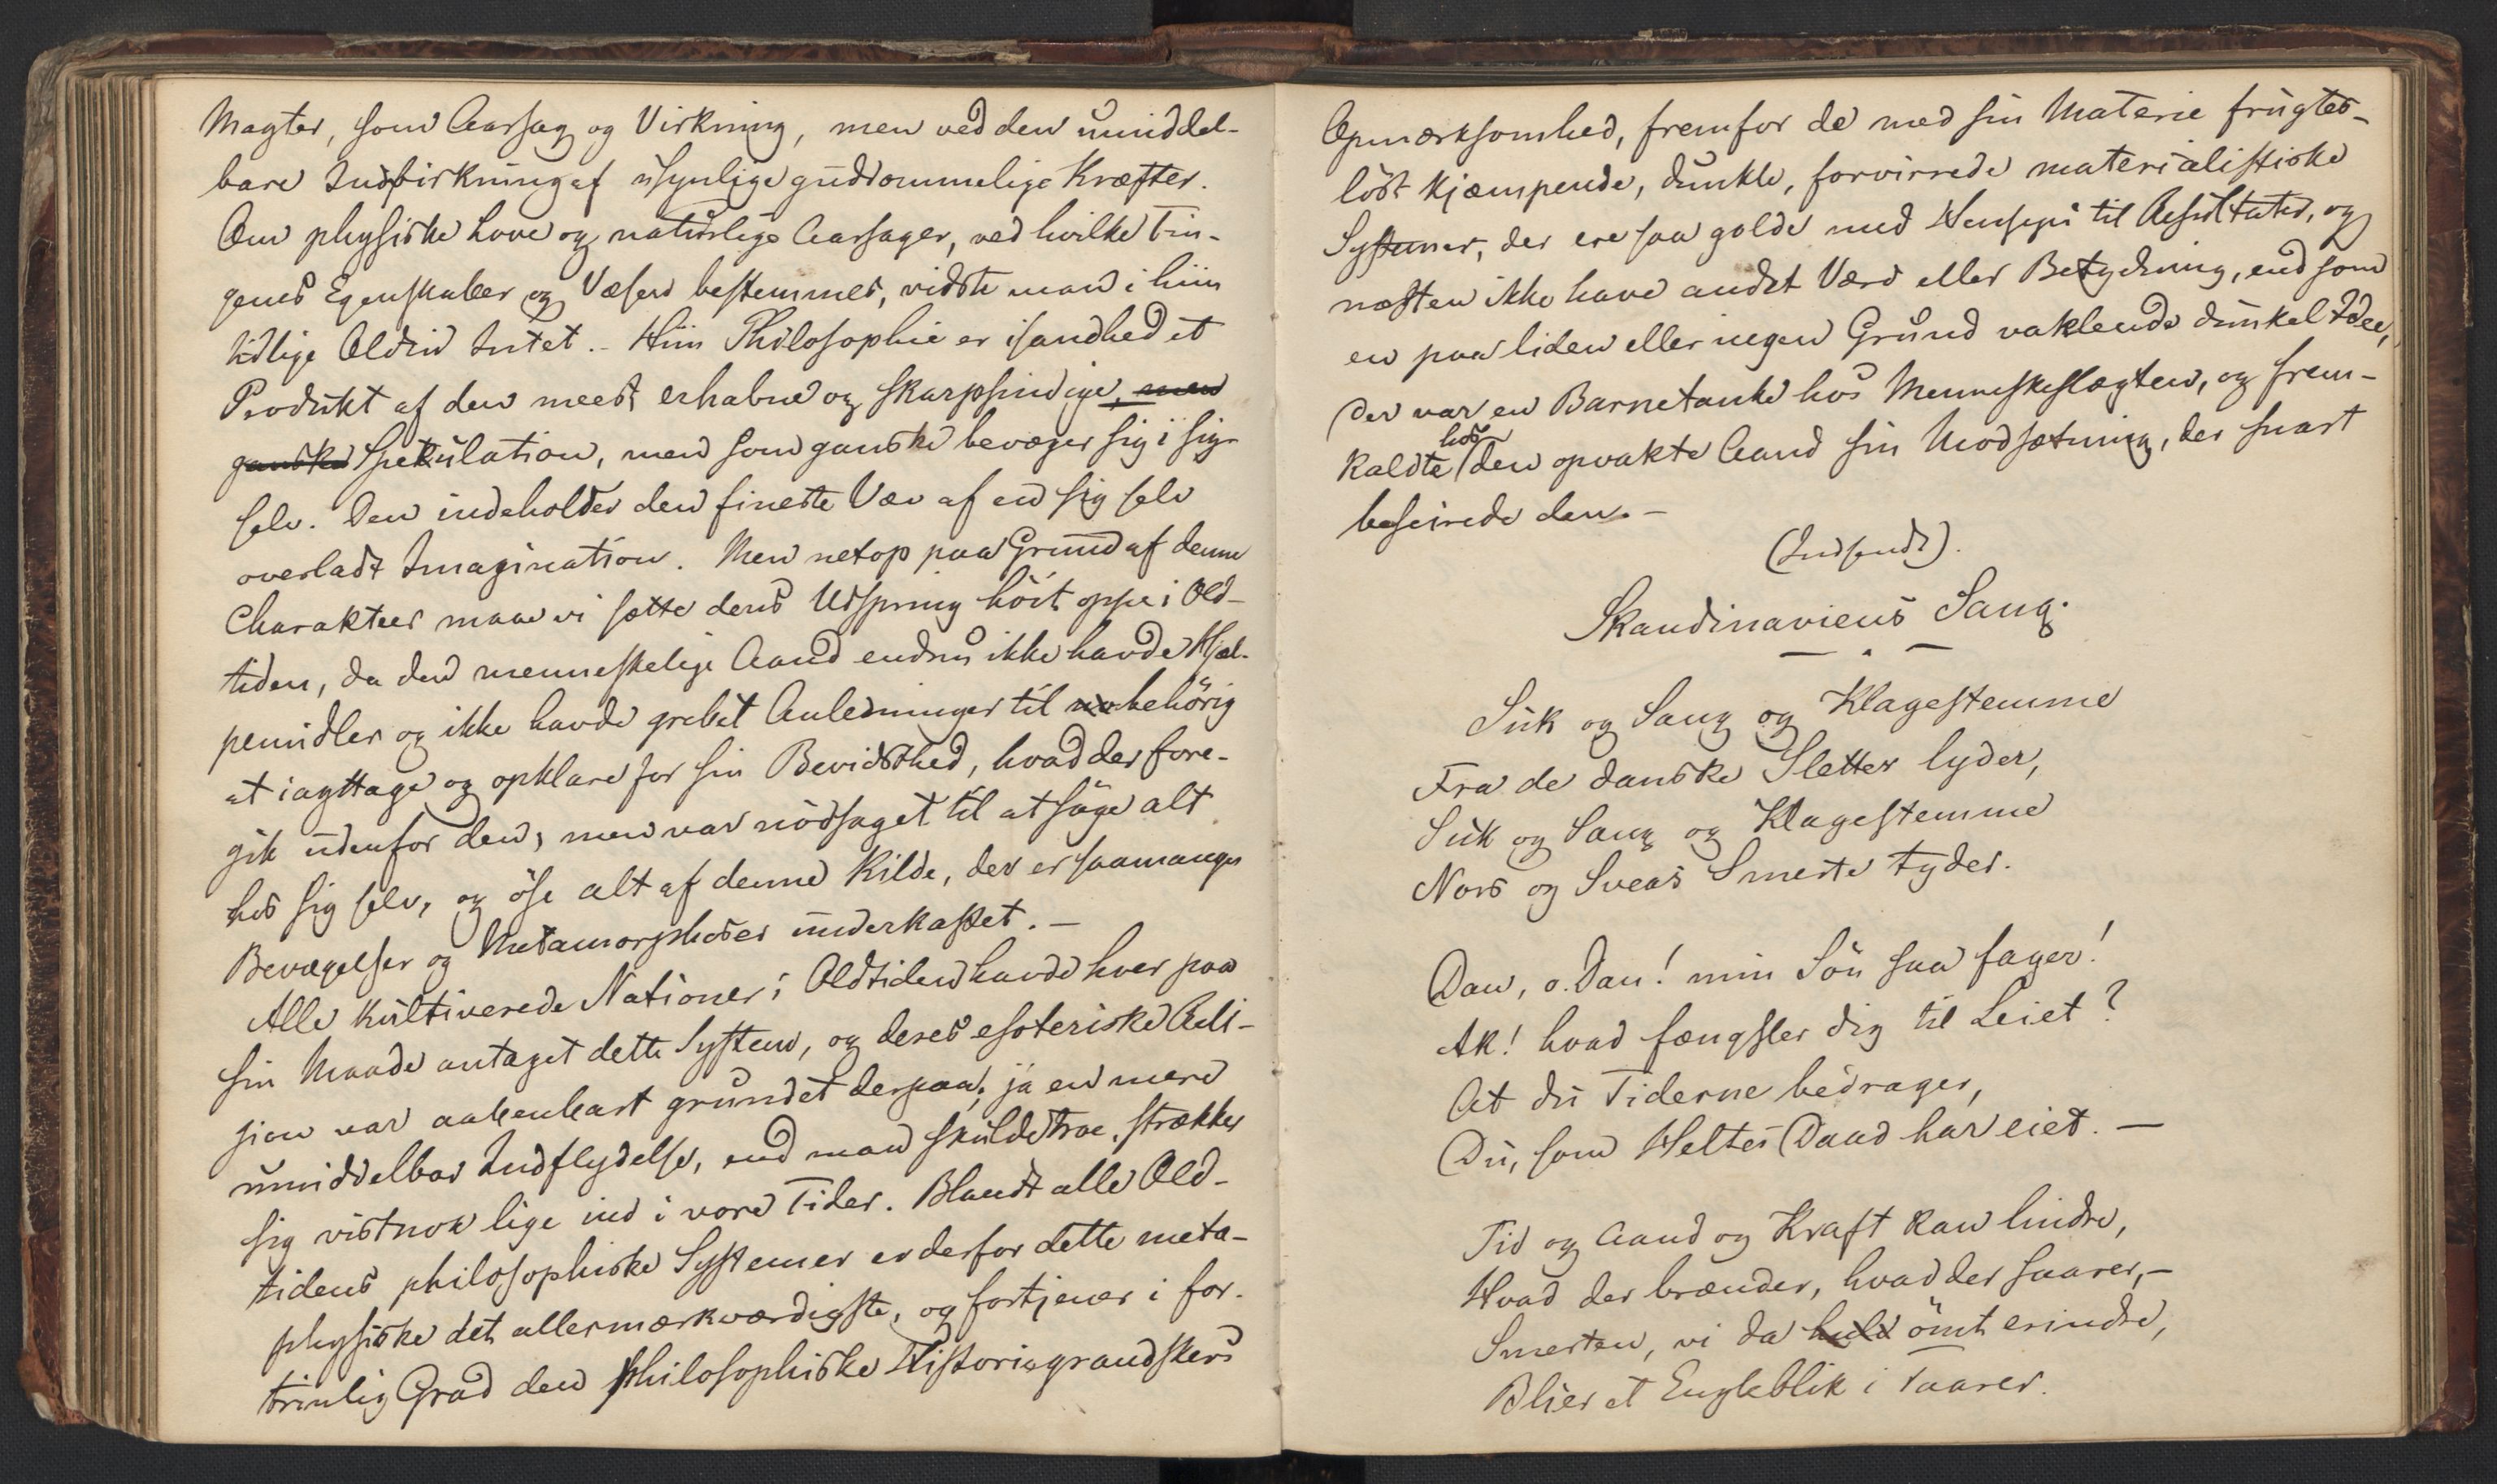 Magter, som Aarsag og Virkning, men ved den umiddel-
bare Indvirkning af usynlige guddommelige Kræfter.
Om physiske Love og naturlige Aarsager, ved hvilke Tin-
genes Egenskaber og Væsen bestemmes, vidste man i hiin
tidlige Oldtid Intet. - Hiin Philosophie er isandhed et
Produkt af den meest erhabne og skarpsindige, men
ganske Spekulation, men som ganske bevæger sig i sig
selv. Den indeholder den fineste Væv af en sig selv
overladt Imagination. Men netop paa Grund af denne
Charakteer maae vi sætte dens Udspring høit oppe i Old-
tiden, da den menneskelige Aand endnu ikke havde Hjæl-
pemidler og ikke havde grebet Anledninger til behörig
at iagttage og opklare for sin Bevidsthed, hvad der fore-
gik udenfor den, men var nödsaget til at söge alt
hos sig selv, og öse alt af denne Kilde, der er saamange
Bevægelser og Metamorphoser underkastet. -
Alle kultiverede Nationer i Oldtiden havde hver paa
sin Maade antaget dette System, og deres esoteriske Reli-
gion var aabenbart grundet derpaa, ja en mere
umiddelbar Indflydelse, end man skulde troe, strækker
sig vistnok lige ind i vore Tider. Blandt alle Old-
tidens philosophiske Systemer er derfor dette meta-
physiske det allermærkværdigste, og fortjener i for-
trinlig Grad den philosophiske Historiegrandskers
Opmærksomhed, fremfor de med sin Materie frugtes-
löst kjæmpende, dunkle, forvirrede materialistiske
Systemer, der ere saa golde med Hensyn til Resultater, og
næsten ikke have andet Værd eller Betydning, end som
en paa liden eller ingen Grund vaklende dunkel Idee,
der var en Barnetanke hos Menneskeslægten, og frem-
kaldte hos den opvakte Aand sin Modsætning, der snart
beseirede den. -
(Indsendt).
Skandinaviens Sang.
Suk og Sang og Klagestemme
Fra de danske Sletter lyder,
Suk og Sang og Klagestemme
Nors og Sveas Smerte tyder.
Dan, o. Dan! min Sön saa fager!
Ak! hvad fængsler dig til Leiet?
At du Tiderne bedrager,
Du, som Heltes Daad har eiet. -
Tid og Aand og Kraft kan lindre,
Hvad der brænder, hvad der saarer, -
Smerten, vi da huld ömt erindre,
Blier et Engleblik i Taarer.